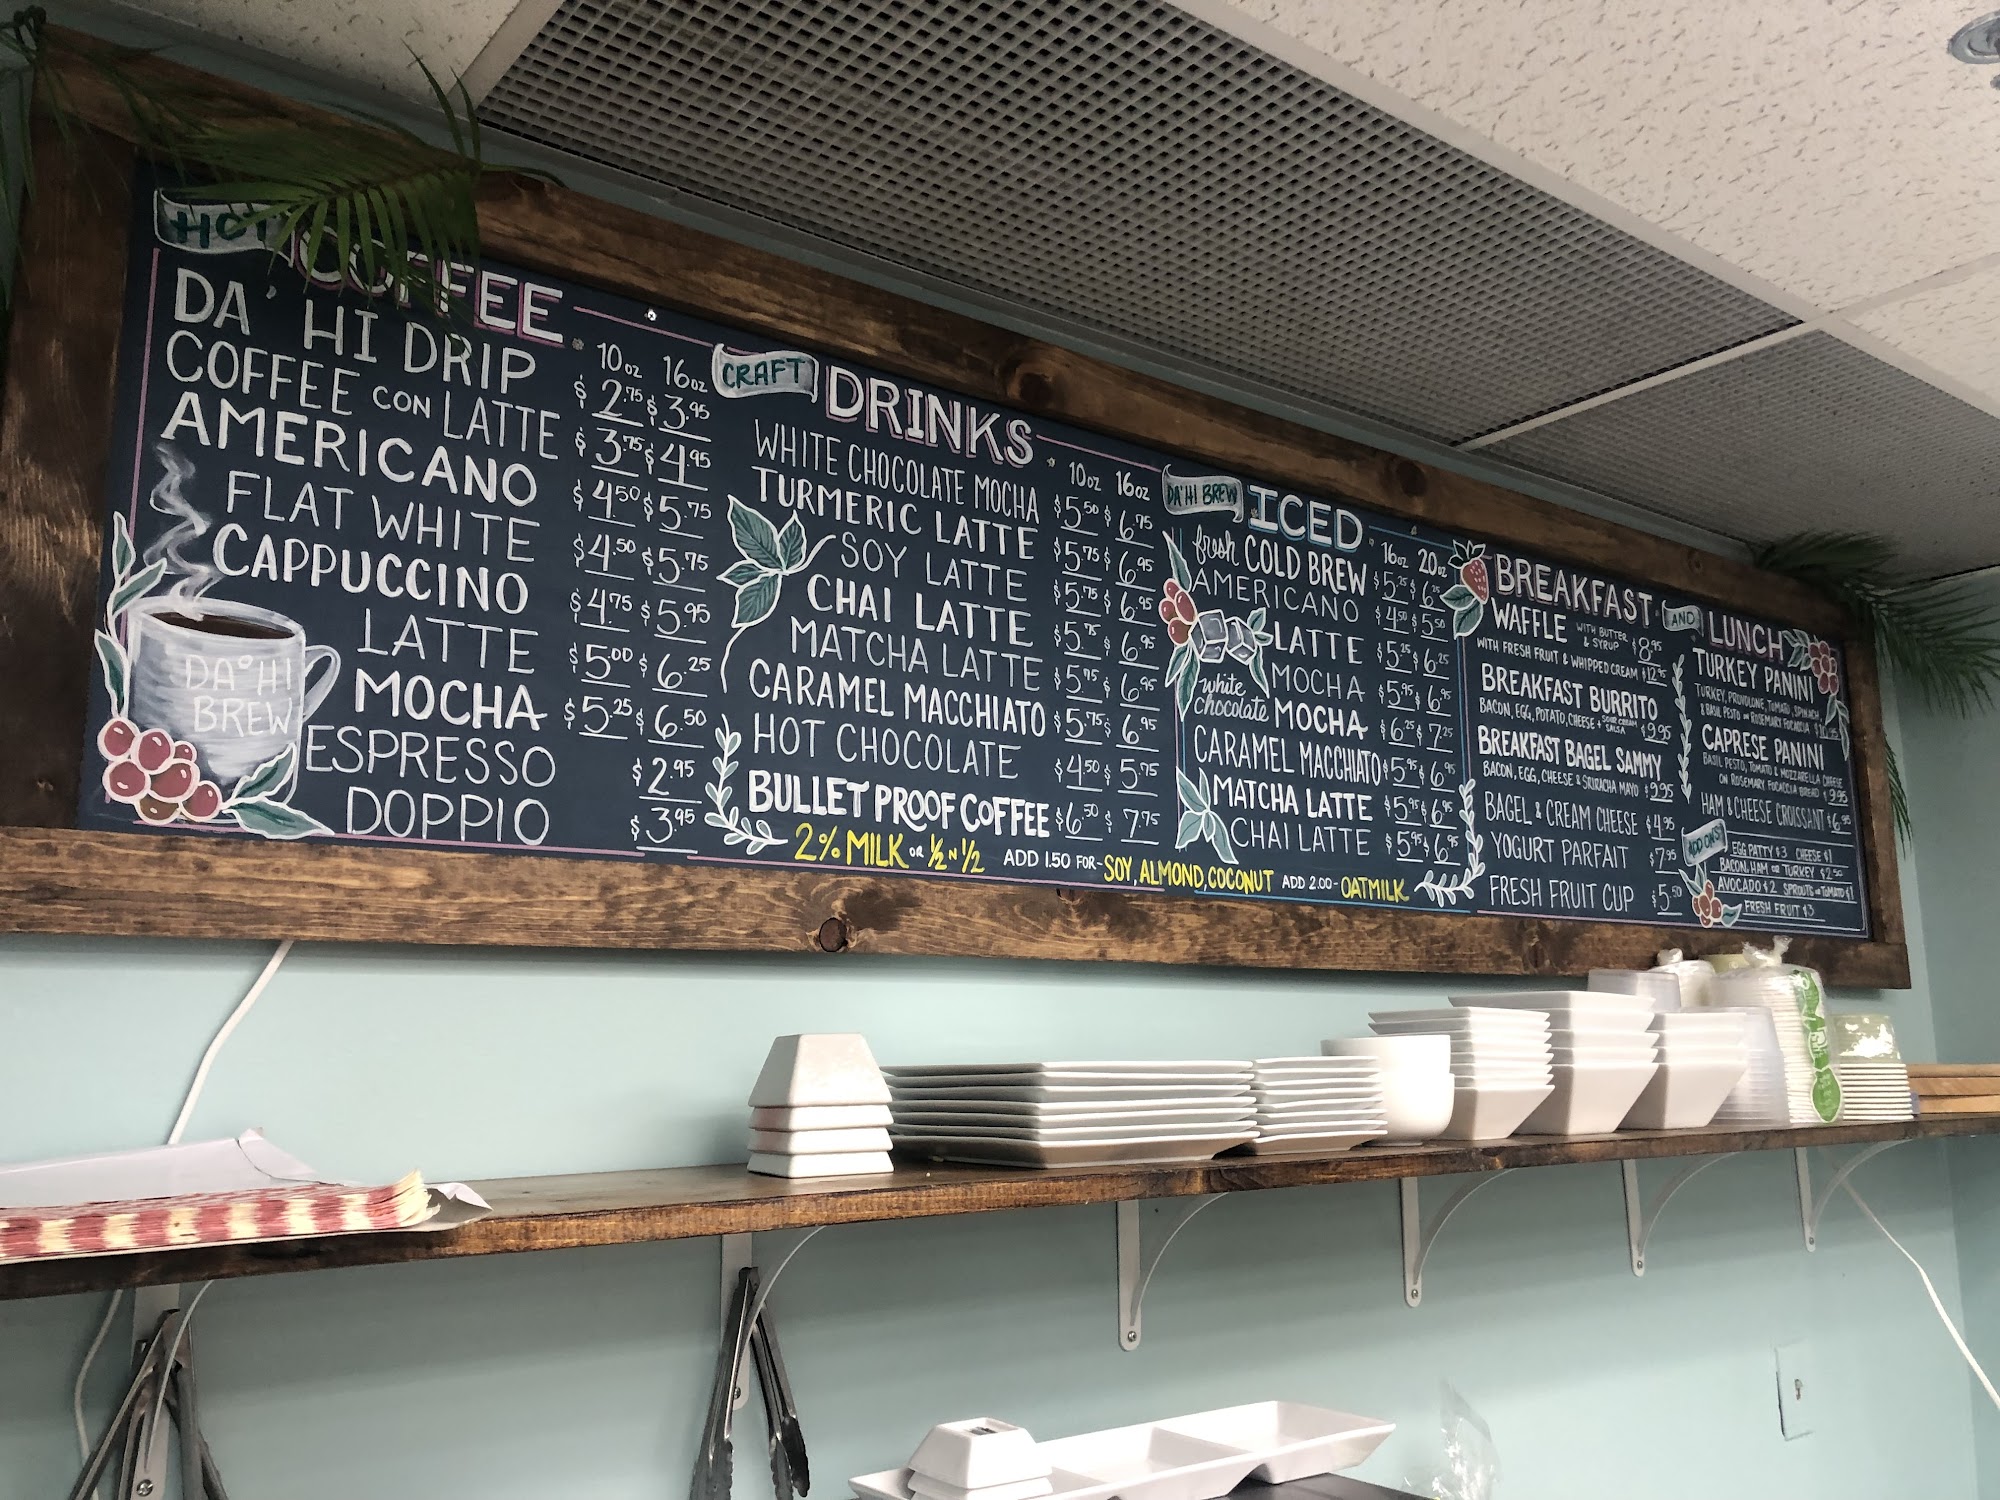 HOT COFFEE
10oz 16oz
DA' HI DRIP $2.75 $3.95
COFFEE CON LATTE $3.75 $4.95
AMERICANO $4.50 $5.75
FLAT WHITE $4.50 $5.75
CAPPUCCINO $4.75 $5.95
LATTE $5.00 $6.25
MOCHA $5.25 $6.50
ESPRESSO $2.95
DOPPIO $3.95
DA HI
BREW
CRAFT DRINKS
10oz 16oz
WHITE CHOCOLATE MOCHA $5.50 $6.75
TURMERIC LATTE $5.75 $6.95
SOY LATTE $5.75 $6.95
CHAI LATTE $5.75 $6.95
MATCHA LATTE $5.75 $6.95
CARAMEL MACCHIATO $5.75 $6.95
HOT CHOCOLATE $4.50 $5.75
BULLET PROOF COFFEE $6.50 $7.75
2% MILK OR 1/2 N 1/2 ADD 1.50 FOR - SOY, ALMOND, COCONUT ADD 2.00 - OATMILK
DA'HI BREW ICED
16oz 20oz
fresh COLD BREW $5.25 $6.25
AMERICANO $4.50 $5.50
LATTE $5.25 $6.25
MOCHA $5.95 $6.95
white chocolate MOCHA $6.25 $7.25
CARAMEL MACCHIATO $5.95 $6.95
MATCHA LATTE $5.95 $6.95
CHAI LATTE $5.95 $6.95
BREAKFAST AND LUNCH
WAFFLE WITH BUTTER & SYRUP $8.95
WITH FRESH FRUIT & WHIPPED CREAM $12.95
BREAKFAST BURRITO
BACON, EGG, POTATO, CHEESE + SOUR CREAM SALSA $9.95
BREAKFAST BAGEL SAMMY
BACON, EGG, CHEESE & SRIRACHA MAYO $9.95
BAGEL & CREAM CHEESE $4.95
YOGURT PARFAIT $7.95
FRESH FRUIT CUP $5.50
TURKEY PANINI
TURKEY, PROVOLONE, TOMATO, SPINACH
& BASIL PESTO ON ROSEMARY FOCACCIA
CAPRESE PANINI
BASIL PESTO, TOMATO & MOZZARELLA CHEESE
ON ROSEMARY FOCACCIA BREAD $9.95
HAM & CHEESE CROISSANT $6.95
ADD ONS!
EGG PATTY $3 CHEESE $1
BACON, HAM OR TURKEY $2.50
AVOCADO $2 SPROUTS OR TOMATO $1
FRESH FRUIT $3